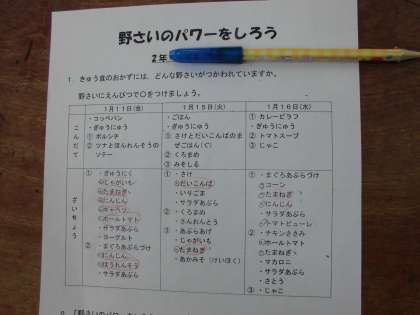 野さいのパワーをしろう
2年
1．きゅう食のおかずには、どんな野さいがつかわれていますか。
野さいにえんぴつで○をつけましょう。
1月11日(金)
1月15日(火)
1月16日(水)
こんだて
・コッペパン
・ぎゅうにゅう
① ボルシチ
② ツナとほうれんそうの
ソテー
・ごはん
・ぎゅうにゅう
① さけとだいこんばのま
ぜごはん(ぐ)
② くろまめ
③ みそしる
① カレーピラフ
・ぎゅうにゅう
② トマトスープ
③ じゃこ
ざいりょう
① ・ぎゅうにく
じゃがいも
たまねぎ
にんじん
キャベツ
ホールトマト
・サラダあぶら
・ヨーグルト
② ・まぐろあぶらづけ
にんじん
ほうれんそう
・サラダあぶら
① ・さけ
だいこんば
・いりごま
・サラダあぶら
② ・くろまめ
・さんおんとう
③ ・あぶらあげ
・じゃがいも
たまねぎ
・あかみそ（けいほく）
① ・まぐろあぶらづけ
コーン
たまねぎ
にんじん
・サラダあぶら
トマトピューレ
② ・チキンささみ
ホールトマト
たまねぎ
・マカロニ
・サラダあぶら
・さとう
③ ・じゃこ